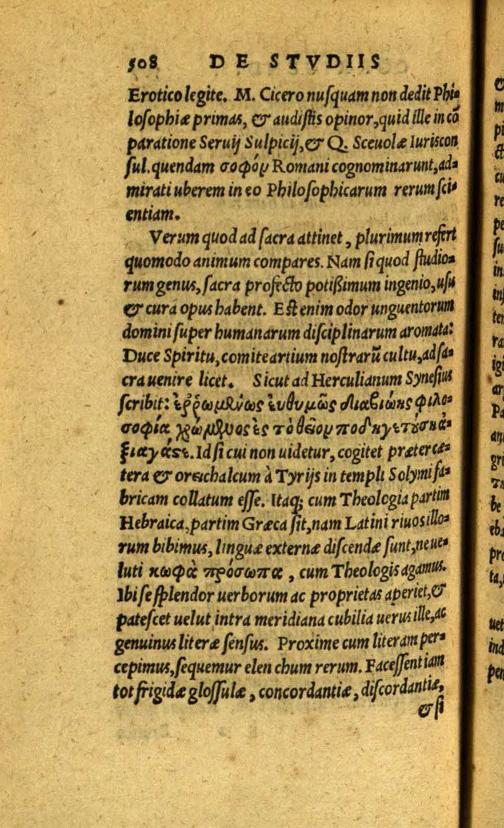 508 DE STVDIIS
Erotico legite. M. Cicero nusquam non dedit Phi-
losophiæ primas, & audistis opinor, quid ille in cō
paratione Seruij Sulpicij, & Q. Sceuolæ Iuriscon
sul. quendam σοφὸν Romani cognominarunt, ad-
mirati uberem in eo Philosophicarum rerum sci-
entiam.
Verum quod ad sacra attinet, plurimum refert
quomodo animum compares. Nam si quod studio-
rum genus, sacra profecto potißimum ingenio, usu
& cura opus habent. Est enim odor unguentorum
domini super humanarum disciplinarum aromata:
Duce Spiritu, comite artium nostrarū cultu, ad sa-
cra uenire licet. Sicut ad Herculianum Synesius
scribit: ἐῤῥωμένως ἐυθυμῶς διαβιώης φιλο-
σοφία χρώμενος ἐς τὸ θεῖον ποδηγετούσῃ
Id si cui non uidetur, cogitet præter cæ-
tera & oreichalcum à Tyrijs in templi Solymi fa-
bricam collatum esse. Itaq; cum Theologia partim
Hebraica, partim Græca sit, nam Latini riuos illo-
rum bibimus, linguæ externæ discendæ sunt, ne ue-
luti κωφὰ πρόσωπα, cum Theologis agamus.
Ibi se splendor uerborum ac proprietas aperiet, &
patescet uelut intra meridiana cubilia uerus ille, ac
genuinus literæ sensus. Proxime cum literam per-
cepimus, sequemur elenchum rerum. Facessent iam
tot frigidæ glossulæ, concordantiæ, discordantiæ,
& si